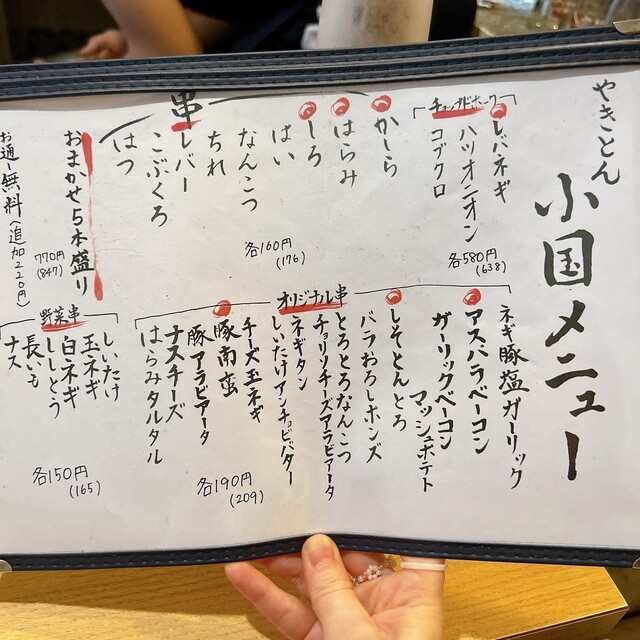 やきとん
小国メニュー
チョップドポーク
レバネギ
ハツオニオン
コブクロ
各580円
(638)
串
かしら
はらみ
しろ
はい
なんこつ
ちれ
レバー
こぶくろ
はつ
各160円
(176)
おまかせ5本盛り
770円
(847)
お通し無料(追加220円)
ネギ豚塩ガーリック
アスパラベーコン
ガーリックベーコン
マッシュポテト
オリジナル串
しそとんとろ
バラおろしポンズ
とろとろなんこつ
チョリソチーズアラビアータ
ネギタン
しいたけアンチョビバター
チーズ玉ネギ
豚南蛮
豚アラビアータ
ナスチーズ
はらみタルタル
各190円
(209)
野菜串
しいたけ
玉ネギ
白ネギ
ししとう
長いも
ナス
各150円
(165)